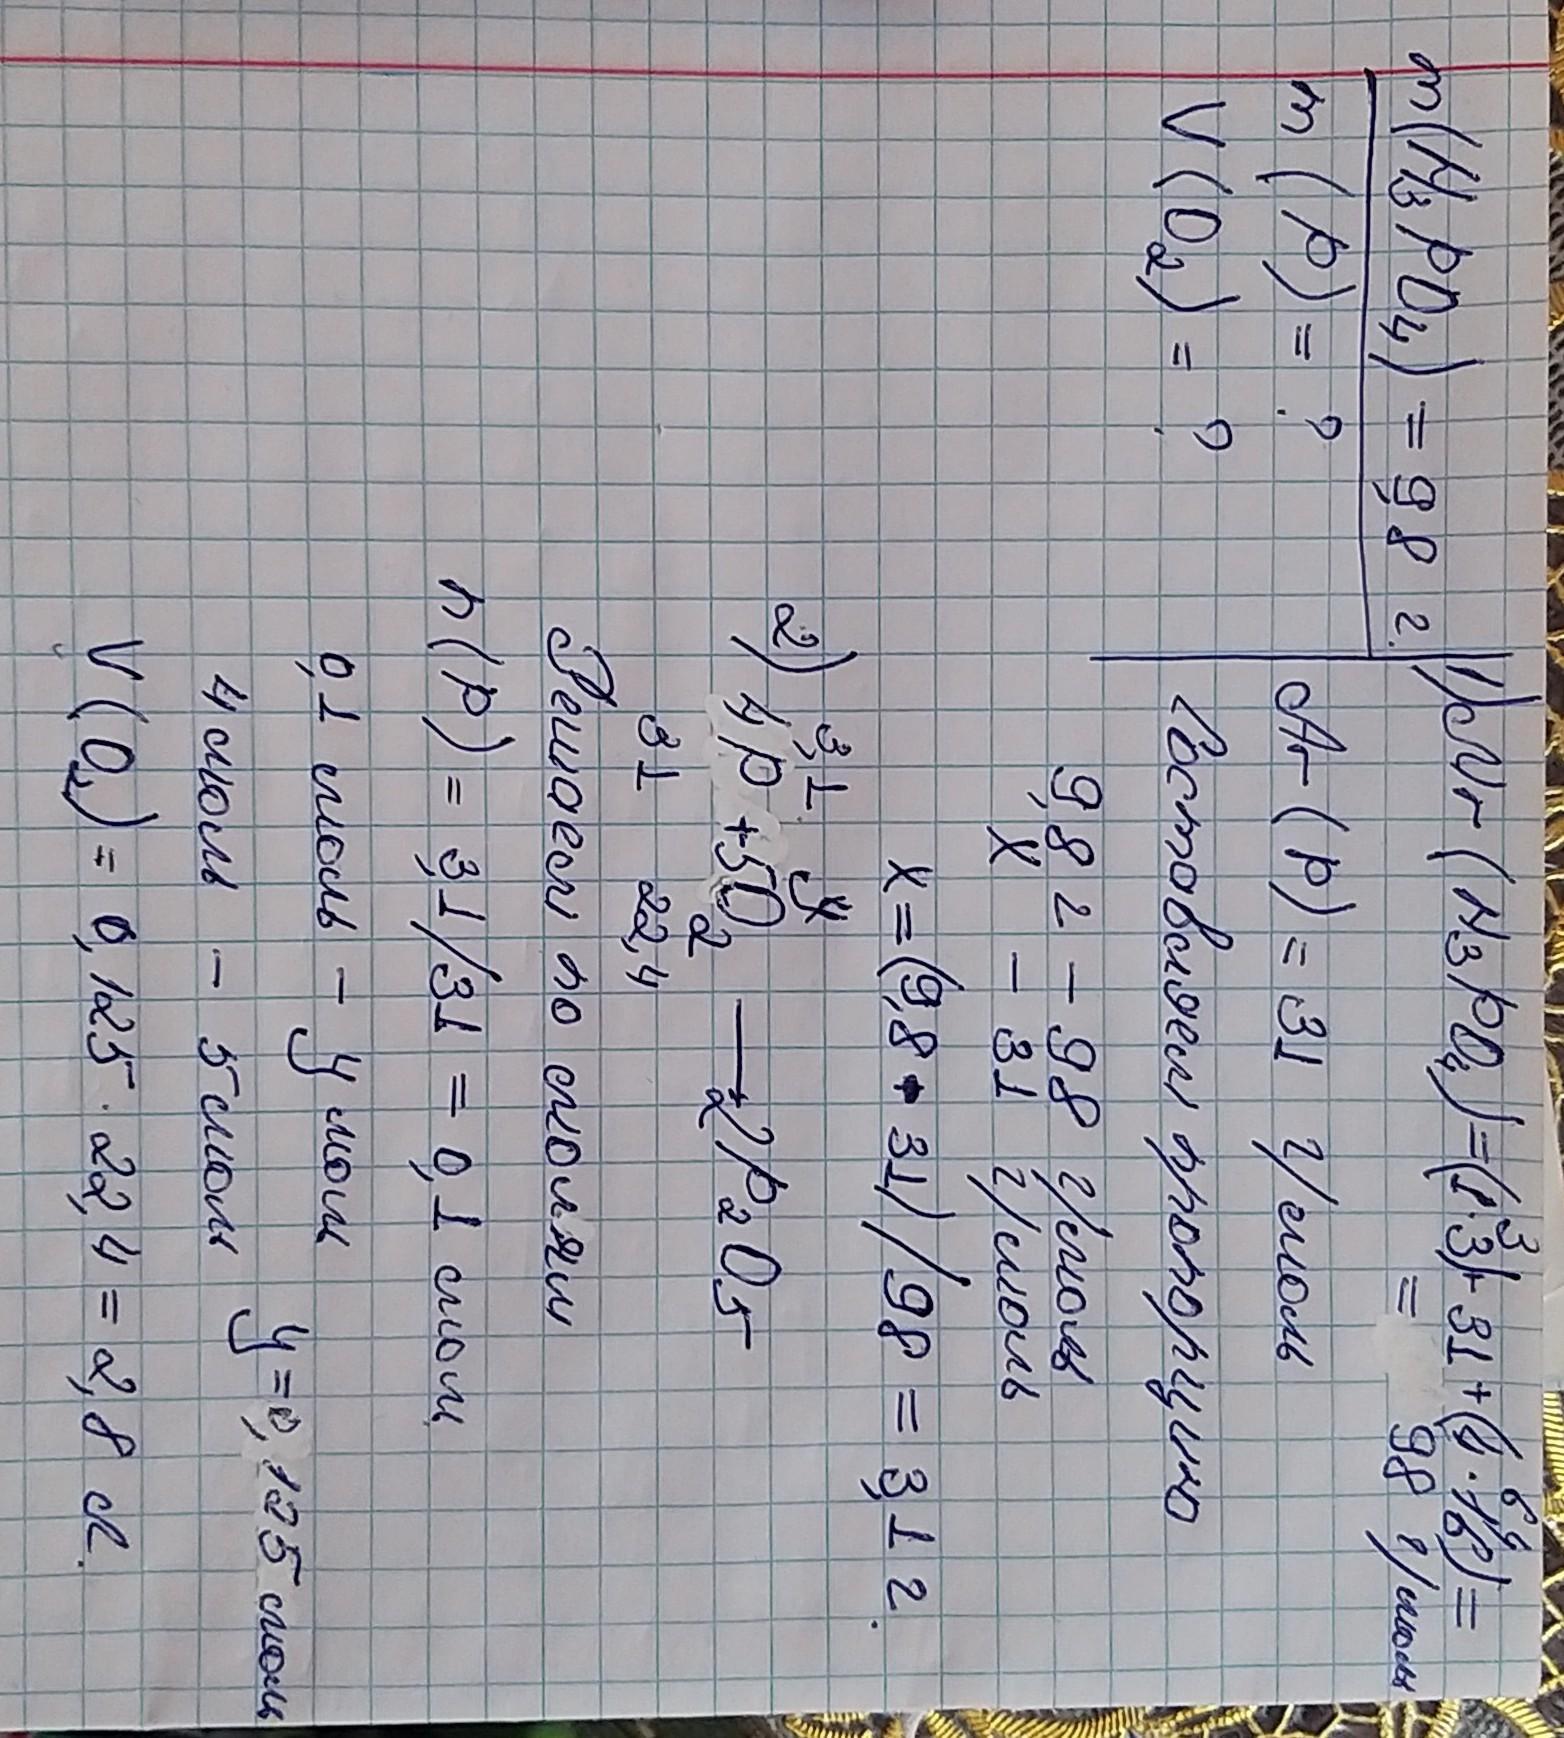 m(H3PO4) = 9,8 г.
m(P) = ?
V(O2) = ?
1) Mr(H3PO4) = (1·3)+31+(4·16) =
3 64
= 98 г/моль
Ar(P) = 31 г/моль
Составляем пропорцию
9,8 г – 98 г/моль
X – 31 г/моль
X = (9,8 · 31)/98 = 3,1 г.
3,1 y
2) 4P + 5O2 → 2P2O5
31 22,4
Решаем по молям
n(P) = 3,1/31 = 0,1 моль
0,1 моль – y моль
4 моль – 5 моль y = 0,125 моль
V(O2) = 0,125 · 22,4 = 2,8 л.